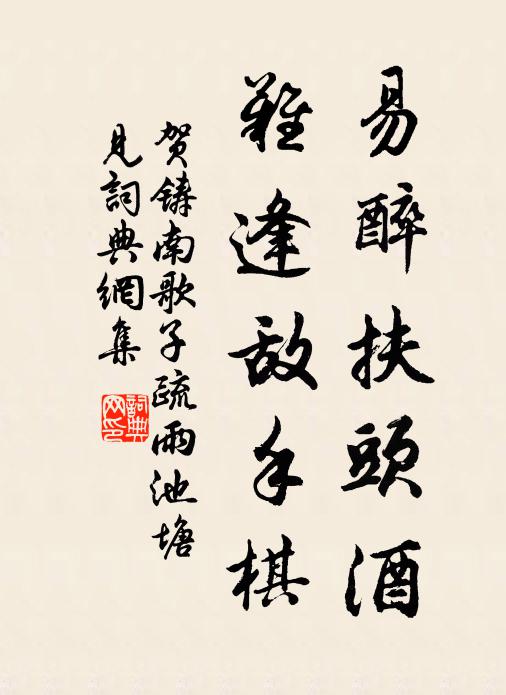 易醉扶頭酒
難逢敌手棋
贺鑄南歌子疏雨池塘
見詞典網集
詞典網印